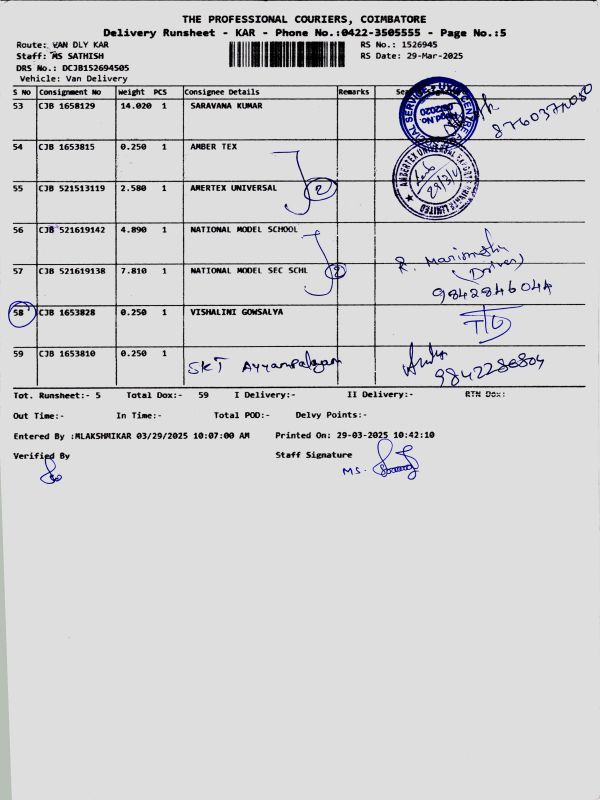 THE PROFESSIONAL COURIERS, COIMBATORE
Delivery Runsheet - KAR - Phone No.:0422-3505555 - Page No.:5
Route: VAN DLY KAR RS No.: 1526945
Staff: MS SATHISH RS Date: 29-Mar-2025
DRS No.: DCJB152694505
Vehicle: Van Delivery
S No Consignment No Weight PCS Consignee Details Remarks
53 CJB 1658129 14.020 1 SARAVANA KUMAR
54 CJB 1653815 0.250 1 AMBER TEX
55 CJB 521513119 2.580 1 AMERTEX UNIVERSAL 2
56 CJB 521619142 4.890 1 NATIONAL MODEL SCHOOL
R. Marimuthu
57 CJB 521619138 7.810 1 NATIONAL MODEL SEC SCHL 2 (Driver)
9842846044
58 CJB 1653828 0.250 1 VISHALINI GOWSALYA
59 CJB 1653810 0.250 1 SKT Ayyampalayam
9842286804
Tot. Runsheet:- 5 Total Dox:- 59 I Delivery:- II Delivery:- RTN Dox:
Out Time:- In Time:- Total POD:- Delvy Points:-
Entered By :MLAKSHMIKAR 03/29/2025 10:07:00 AM Printed On: 29-03-2025 10:42:10
Verified By Staff Signature
MS.